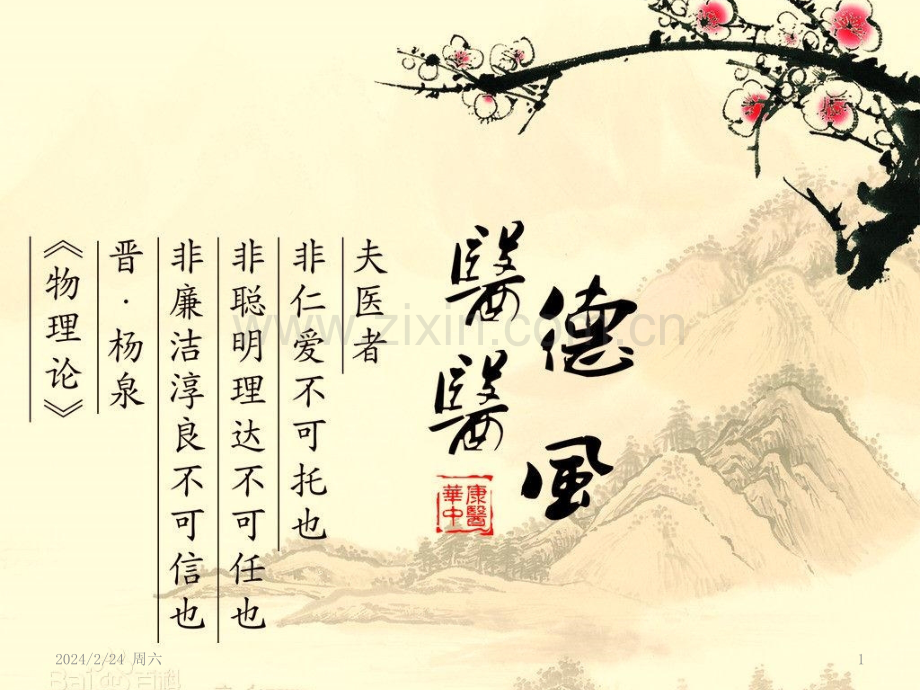 醫德
醫風
康醫
華中
夫医者
非仁爱不可托也
非聪明理达不可任也
非廉洁淳良不可信也
晋·杨泉
《物理论》
www.zixin.com.cn
2024/2/24 周六
1
Bai百科